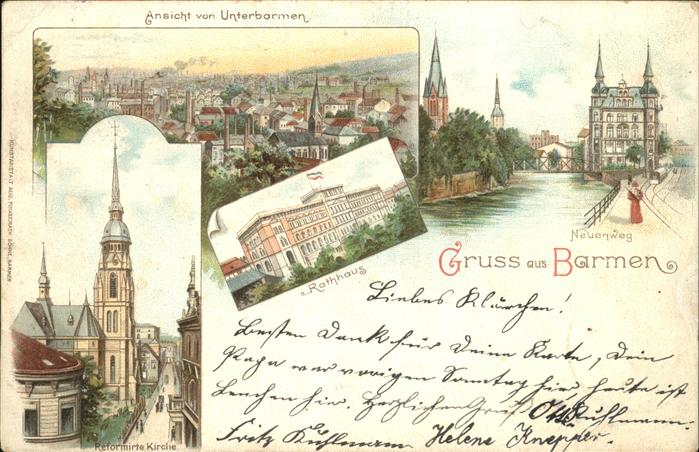 Ansicht von Unterbarmen
KUNSTANSTALT AUG.
BARMEN
Neuerweg
Rathhaus
Gruss aus Barmen
Reformirte Kirche
Liebes Klärchen!
Besten Dank für Deine Karte, Dein
Papa war vorigen Sonntag hier heute ist
hier. Herzlichen Gruß Otto Kuhlmann.
Fritz Kuhlmann Helene Knepper.